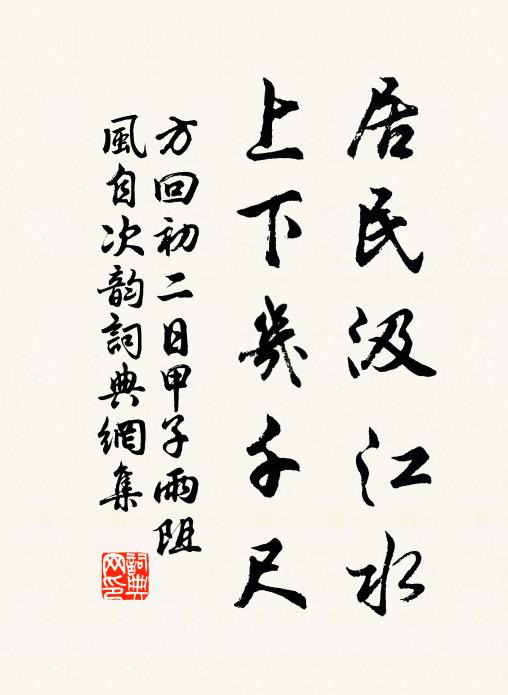 居民汲江水
上下幾千尺
方回初二日甲子雨阻
風自次韵詞典網集
詞典網印